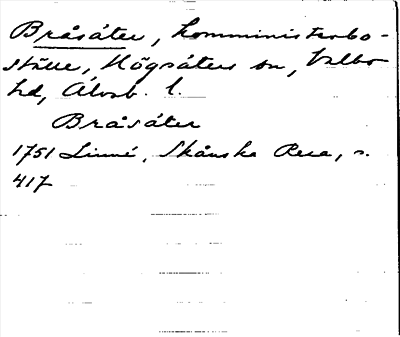 Bråsäter, komministerbo-
ställe, Högsäters sn, Valbo
hd, Älvsb. l.
Bråsäter
1751 Linné, Skånska Resa, s.
417